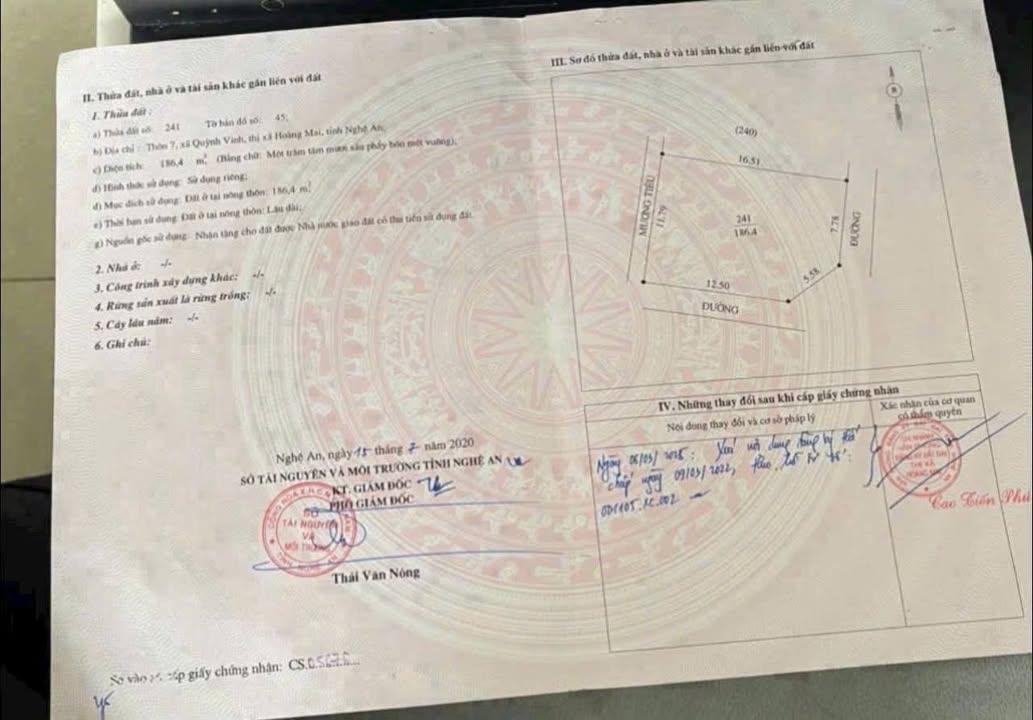 II. Thửa đất, nhà ở và tài sản khác gắn liền với đất
1. Thửa đất :
a) Thửa đất số: 241 Tờ bản đồ số: 45;
b) Địa chỉ : Thôn 7, xã Quỳnh Vinh, thị xã Hoàng Mai, tỉnh Nghệ An;
c) Diện tích: 186,4 m², (Bằng chữ: Một trăm tám mươi sáu phẩy bốn mét vuông);
d) Hình thức sử dụng: Sử dụng riêng;
đ) Mục đích sử dụng: Đất ở tại nông thôn: 186,4 m²;
e) Thời hạn sử dụng: Đất ở tại nông thôn: Lâu dài;
g) Nguồn gốc sử dụng: Nhận tặng cho đất được Nhà nước giao đất có thu tiền sử dụng đất.
2. Nhà ở: -/-
3. Công trình xây dựng khác: -/-
4. Rừng sản xuất là rừng trồng: -/-
5. Cây lâu năm: -/-
6. Ghi chú:
Nghệ An, ngày 15 tháng 7 năm 2020
SỞ TÀI NGUYÊN VÀ MÔI TRƯỜNG TỈNH NGHỆ AN
KT. GIÁM ĐỐC
PHÓ GIÁM ĐỐC
SỞ
TÀI NGUYÊN
VÀ
MÔI TRƯỜNG
Thái Văn Nông
cấp giấy chứng nhận: CS.
III. Sơ đồ thửa đất, nhà ở và tài sản khác gắn liền với đất
B
(240)
16.51
MƯƠNG TIÊU
11.79
241
186.4
7.78
ĐƯỜNG
5.58
12.50
ĐƯỜNG
IV. Những thay đổi sau khi cấp giấy chứng nhận
Nội dung thay đổi và cơ sở pháp lý
Xác nhận của cơ quan
có thẩm quyền
Ngày 06/03/2025: Xoá nội dung đăng ký thế
chấp ngày 09/03/2022, theo hồ sơ số:
Cao Tiến Phú